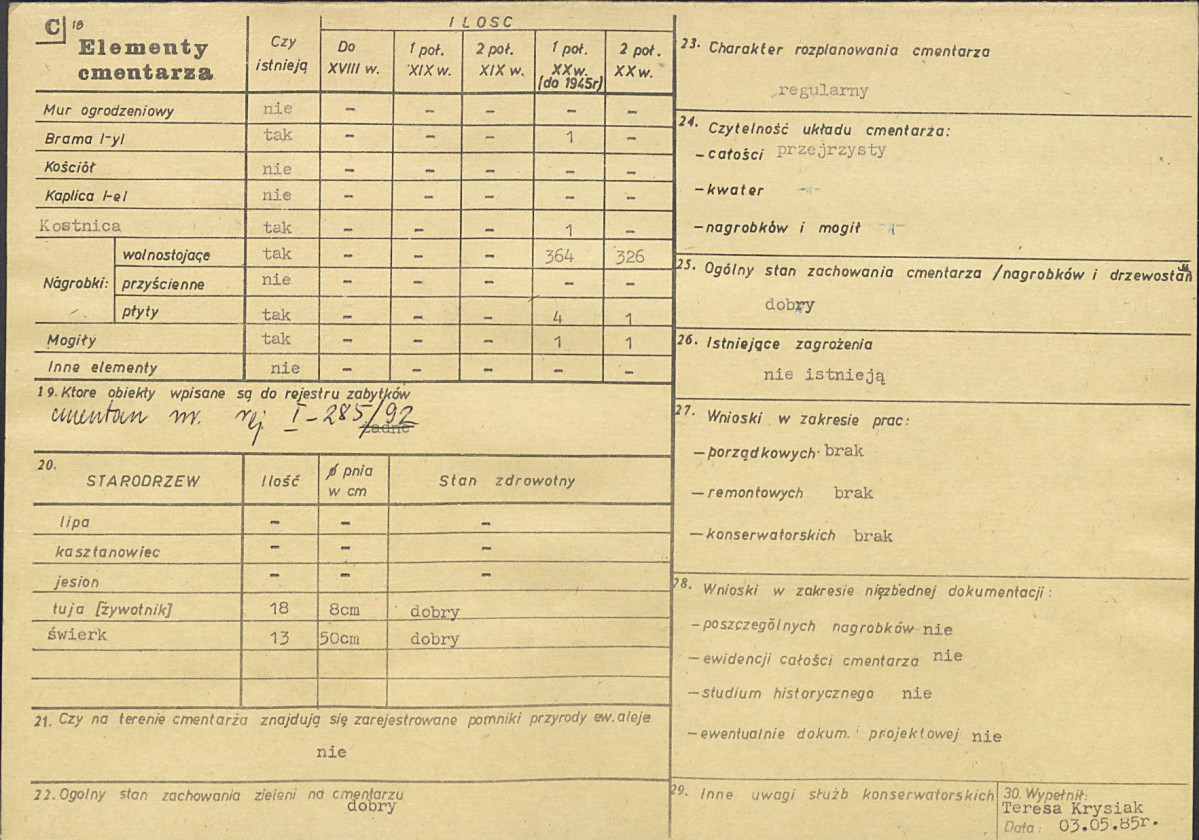 C 18
Elementy
cmentarza
Czy
istnieją
ILOSC
Do
XVIII w.
1 poł.
XIX w.
2 poł.
XIX w.
1 poł.
XX w.
(do 1945r)
2 poł.
XX w.
Mur ogrodzeniowy nie - - - - -
Brama /-y/ tak - - - 1 -
Kościół nie - - - - -
Kaplica /-e/ nie - - - - -
Kostnica tak - - - 1 -
Nagrobki: wolnostojące tak - - - 364 326
przyścienne nie - - - - -
płyty tak - - - 4 1
Mogiły tak - - - 1 1
Inne elementy nie - - - - -
19. Ktore obiekty wpisane są do rejestru zabytków
cmentarz nr. rej I-285/92
żadne
20.
STARODRZEW Ilość ϕ pnia
w cm Stan zdrowotny
lipa - - -
kasztanowiec - - -
jesion - - -
tuja [żywotnik] 18 8cm dobry
świerk 13 50cm dobry
21. Czy na terenie cmentarza znajdują się zarejestrowane pomniki przyrody ew. aleje
nie
22. Ogolny stan zachowania zieleni na cmentarzu
dobry
23. Charakter rozplanowania cmentarza
regularny
24. Czytelność układu cmentarza:
- całości przejrzysty
- kwater -"-
- nagrobków i mogił -"-
25. Ogólny stan zachowania cmentarza /nagrobków i drzewostan
dobry
26. Istniejące zagrożenia
nie istnieją
27. Wnioski w zakresie prac:
- porządkowych brak
- remontowych brak
- konserwatorskich brak
28. Wnioski w zakresie niezbednej dokumentacji:
- poszczególnych nagrobków nie
- ewidencji całości cmentarza nie
- studium historycznego nie
- ewentualnie dokum. projektowej nie
29. Inne uwagi służb konserwatorskich
30. Wypełnił:
Teresa Krysiak
Data: 03.05.85r.